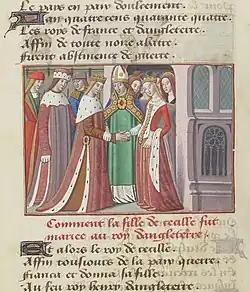 Le pays en paix doulcement.
Lan quatre cens quarante quatre.
Les roys de france et dangleterre.
Affin de toute noise abatre.
Firent abstinence de guerre.
Comment la fille de cecille fut
mariee au roy dangleterre.
Et alors le roy de cecille.
Affin tousiours de la paix querre.
Fianca et donna sa fille.
Au feu roy henry dangleterre.